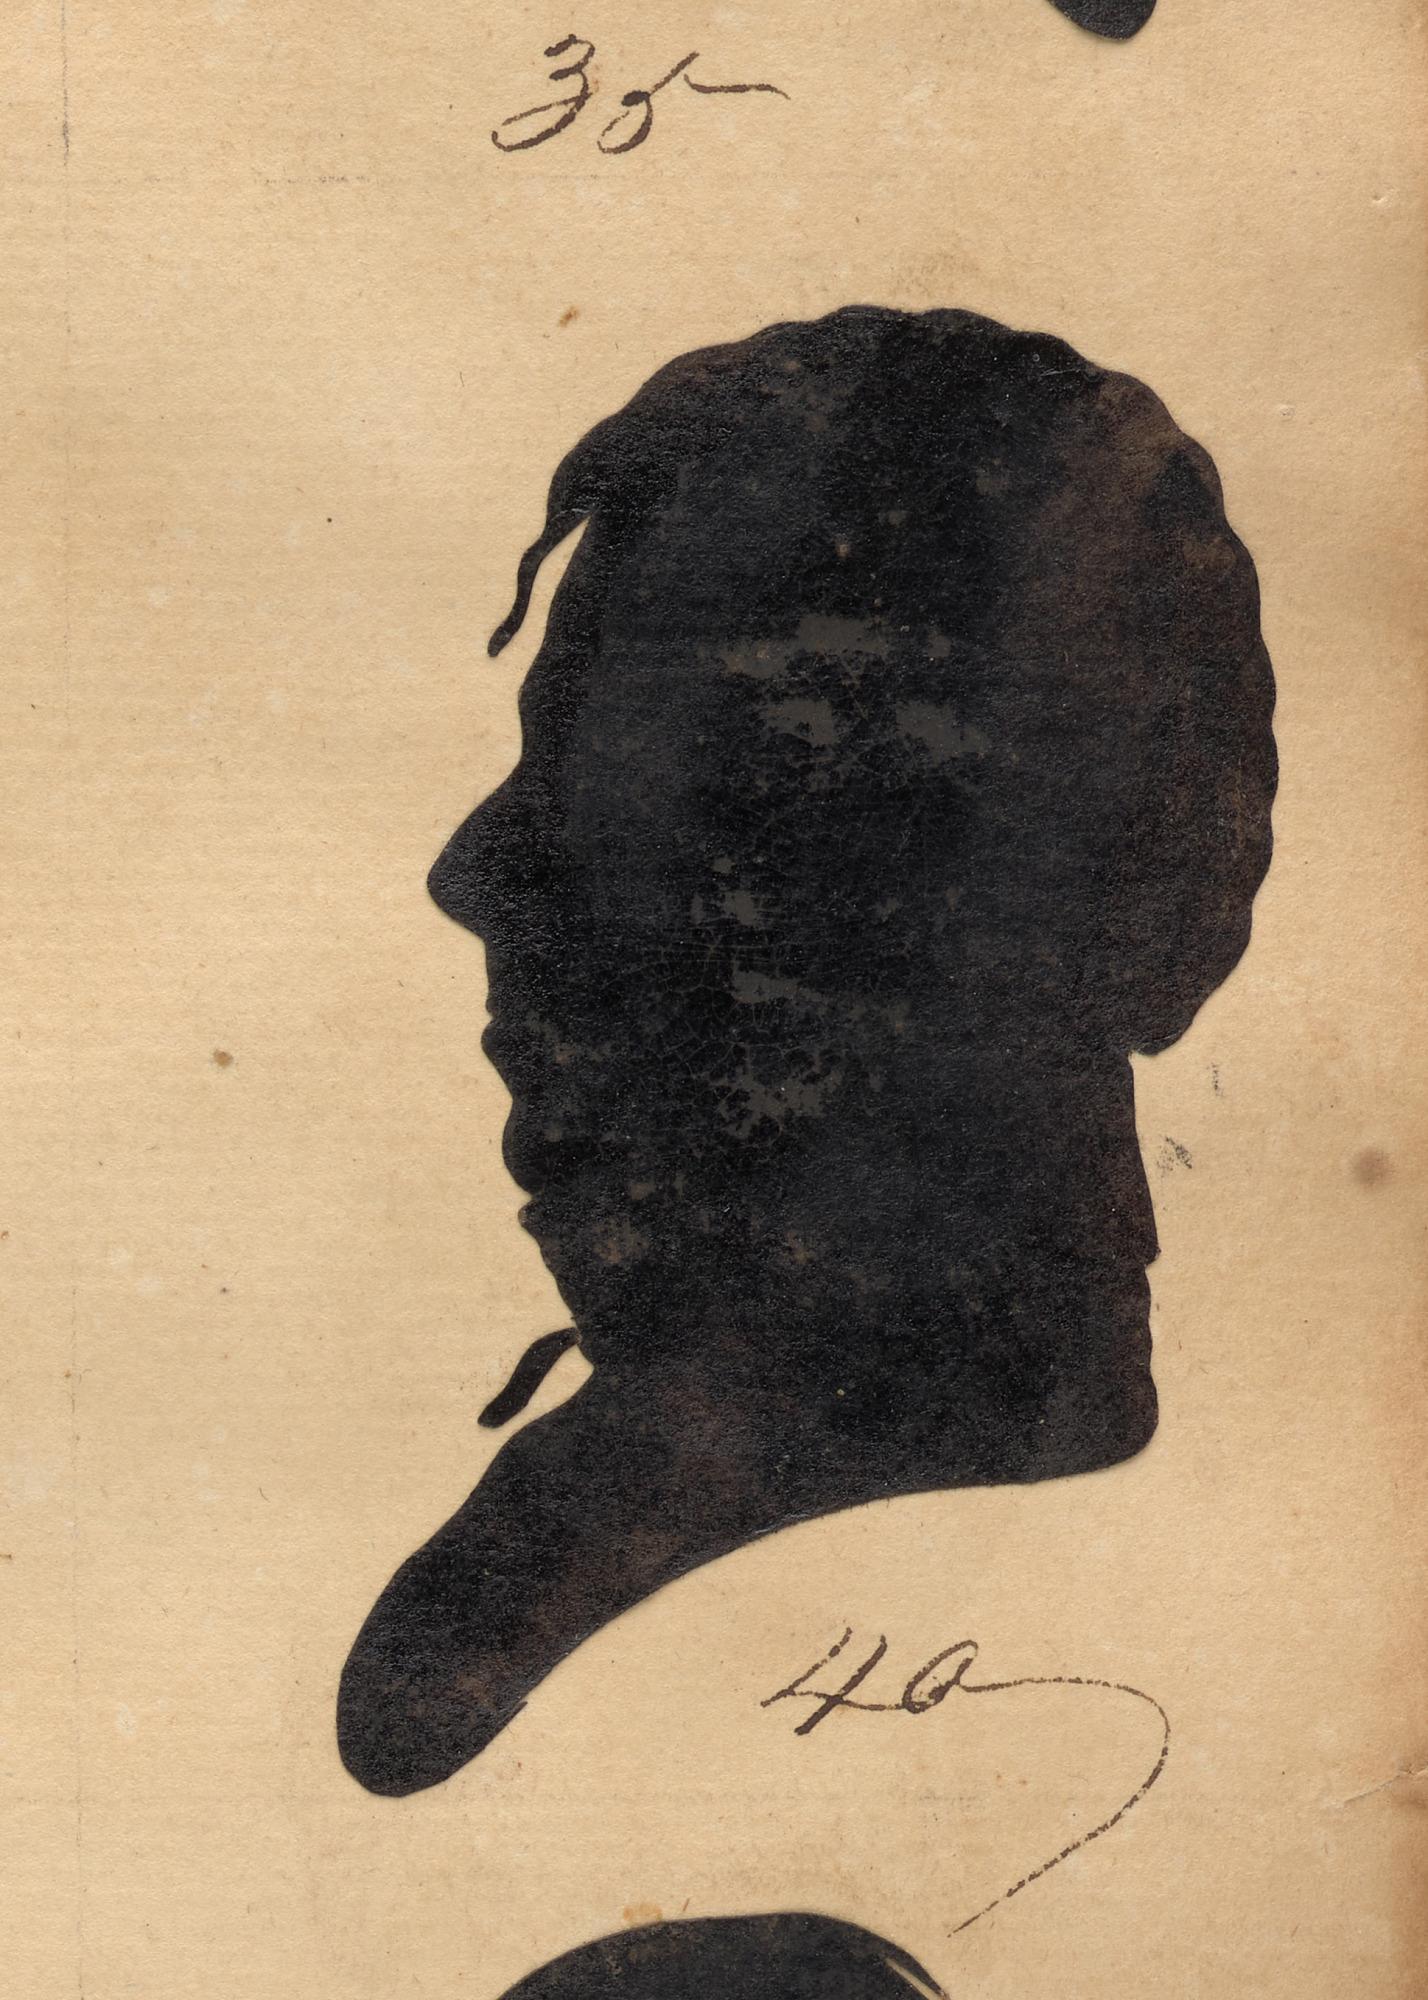 35
40